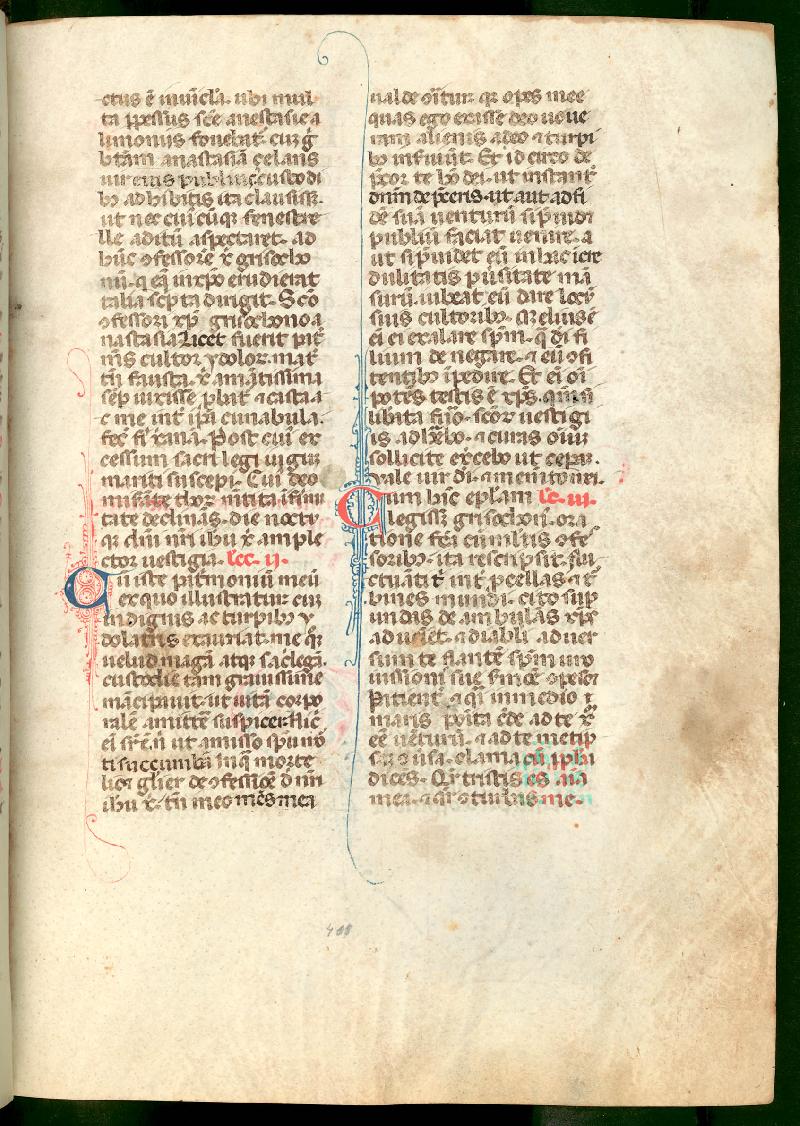 ctus ẽ in uincla. ubi mul
ta ppessus scẽ anestasie a
limoniis fouebat̃. cuiꝰ g̃
btãm anastasiã çelans
uir eius publiuscustodi
bꝰ adhibitis ita clausiss̃.
ut nec cuicũqꝫ fenestre
lle aditũ aspectaret. ad
hũc ꝯfessorẽ x̃ grisogõo
nũ. q eã in xpõ erudierat
talia scpta dirigit. Scõ
ꝯfessori xpĩ grisogono a
nastasia Licet fuerit pat̃
m̃s cultor ydolor. mat̃
tñ fausta. x̃ amãtissima
sẽp uixisse phat̃ ⁊ casta a
c me int̃ ip̃a cunabula.
fec̃ fi xanã. Post cuiꝰ ex
cessum sacrilegi uigũ
mariti suscepi. Cuiꝰ deo
misãte thor̃ infirmi
tate declinãs. die noctu
qꝫ dñi nri ihu x̃ ample
ctor uestigia. lec̃. ii.
Cui iste pat̃moniũ meũ
ex quo illustratur cũ
indignis ac turpibꝫ y
dolatris exauriat. me q̃si
uelud magã atqꝫ sac̃legã.
custodie tam grauissime
mãcipauit. ut uitã corpo
ralẽ amittẽ suspicer. Nic̃
ei sr̃ẽ ñ ut amisso spũ mõ
ti succumbã In q̃ morte
lic̃ glier de ꝯfessioẽ dñi
ihu x̃. tñ meo mẽs mea
ualde ꝯit̃ur. qꝫ opes mee
quas ego ex isse deo uoue
ram alienis a deo ⁊ turpi
bꝫ infuiũt̃. Et idcirco de
p̃cor te hõ dei. ut instant̃
dnm depc̃ris. ut aut ad fi
dẽ suã uenturũ sip̃nidt
publiũ faciat uenire. a
ut si p̃uidet eũ in hac icre
dulitatis p̃usitate mã
surũ. iubeat eũ dare locũ
suis cultoribꝰ. Meliusẽ
ei ei exalare spm̃. q̃ di fi
lium de negare. ⁊ eũ ꝯfi
tentibꝰ ĩpedire. Et ei oĩ
potẽs testis ẽ xps̃. qm̃ si
libita fuo. scõr uestigi
is adhebo. ⁊ curas oĩuꝫ
sollicite exc̃ebo ut cepi.
Vale uir di. ⁊ memto mi.
Cum hãc epl̃am lc̃. iii.
legiss̃ grisogõii. ora
tione fcã cũ multis ꝯfe
soribꝰ. ita rescripsit. flu
ctuãti t̃ int̃ pcellas ⁊ t̃
bines mundi. cito sup
undas de ambulãs xp̃s
ad ueiet. ⁊ diabli aduer
sum te flantẽ spm uno
iussioni sue smõe ꝯpesct̃
Patient̃ ⁊ q̃i in medio
maris poita cede ad te x̃
eẽ uẽturũ. ⁊ ad te metip
sã ꝯ uisa. clama cũ ppha
dices. Qr̃ tristis es aia
mea. ⁊ qr̃ ꝯturbas me.
408